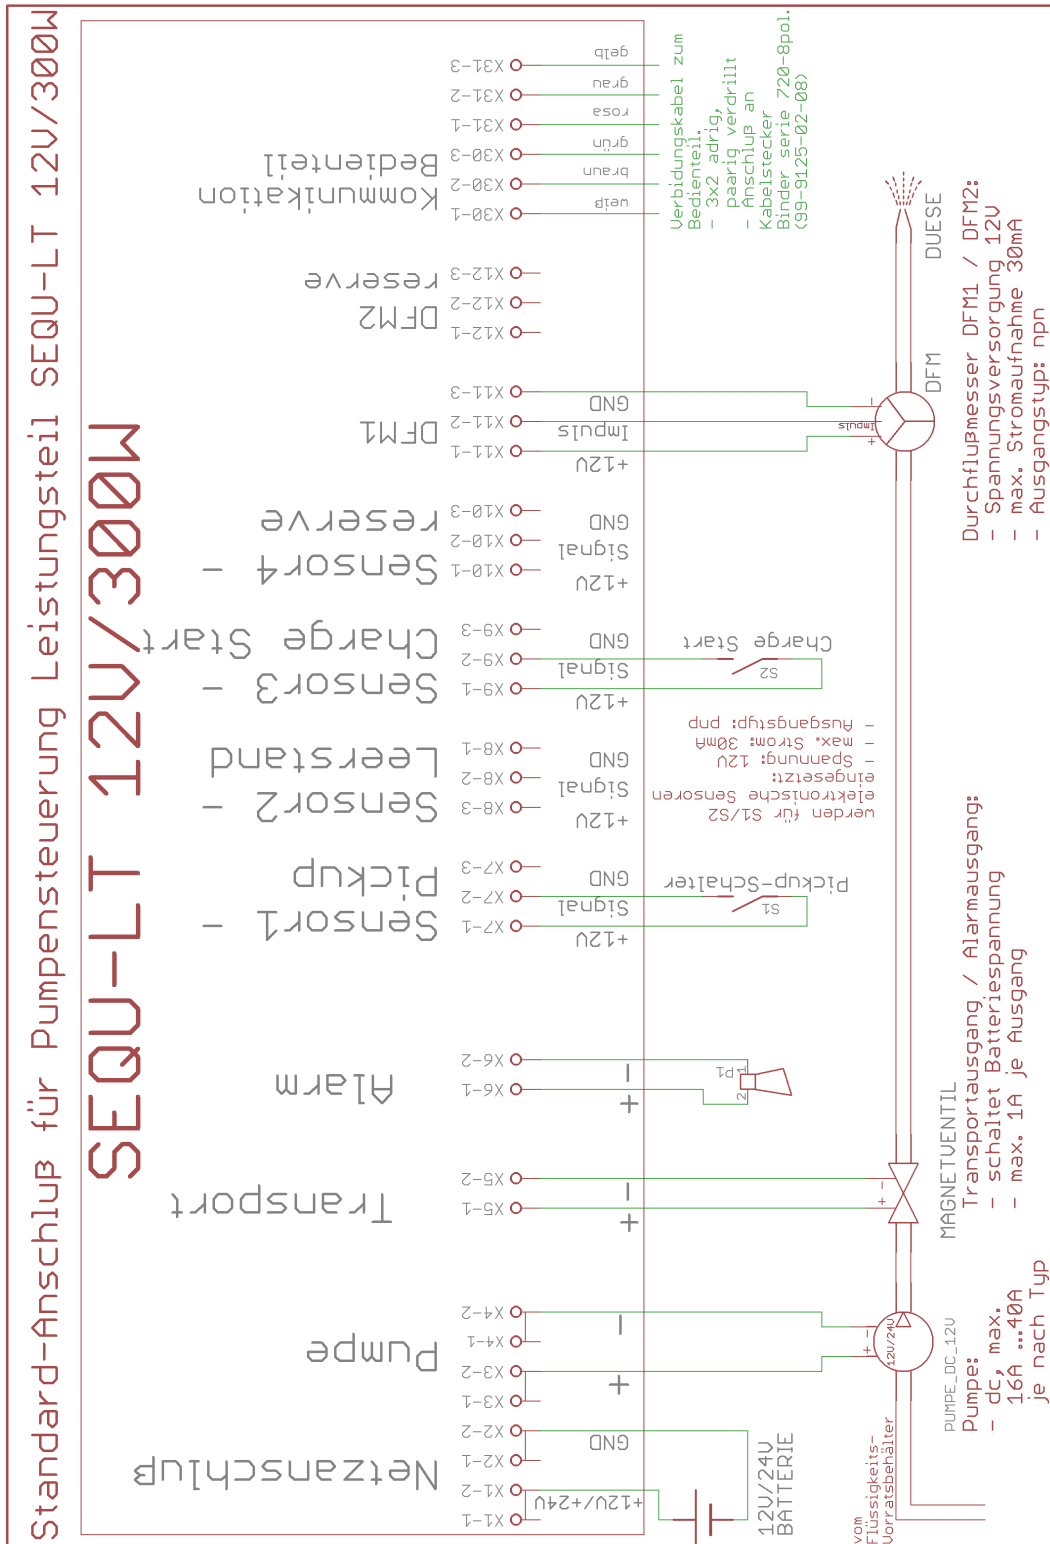 Standard-Anschluß für Pumpensteuerung Leistungsteil SEQU-LT 12V/300W
SEQU-LT 12V/300W
Netzanschluß
X1-1
X1-2
X2-1
X2-2
+12V/+24V
GND
12V/24V
BATTERIE
Pumpe
X3-1
X3-2
X4-1
X4-2
+
-
Transport
X5-1
X5-2
+
-
Alarm
X6-1
X6-2
+
-
P1
2
1
Sensor1 -
Pickup
X7-1
X7-2
X7-3
+12V
Signal
GND
S1
Pickup-Schalter
Sensor2 -
Leerstand
X8-3
X8-2
X8-1
+12V
Signal
GND
werden für S1/S2
elektronische Sensoren
eingesetzt:
- Spannung: 12V
- max. Strom: 30mA
- Ausgangstyp: pnp
Sensor3 -
Charge Start
X9-1
X9-2
X9-3
+12V
Signal
GND
S2
Charge Start
Sensor4 -
reserve
X10-1
X10-2
X10-3
+12V
Signal
GND
DFM1
X11-1
X11-2
X11-3
+12V
Impuls
GND
DFM2
reserve
X12-1
X12-2
X12-3
Kommunikation
Bedienteil
X30-1
X30-2
X30-3
X31-1
X31-2
X31-3
weiß
braun
grün
rosa
grau
gelb
Verbidungskabel zum
Bedienteil.
- 3x2 adrig,
paarig verdrillt
- Anschluß an
Kabelstecker
Binder serie 720-8pol.
(99-9125-02-08)
vom
Flüssigkeits-
Vorratsbehälter
+
-
12V/24V
PUMPE_DC_12V
Pumpe:
- dc, max.
16A ...40A
je nach Typ
+
-
MAGNETVENTIL
Transportausgang / Alarmausgang:
- schaltet Batteriespannung
- max. 1A je Ausgang
+
Impuls
-
DFM
DUESE
Durchflußmesser DFM1 / DFM2:
- Spannungsversorgung 12V
- max. Stromaufnahme 30mA
- Ausgangstyp: npn